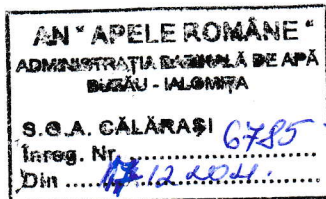 AN "APELE ROMÂNE"
ADMINISTRAȚIA BAZINALĂ DE APĂ
BUZĂU - IALOMIȚA
S.G.A. CĂLĂRAȘI
Înreg. Nr. ......6785
Din ..17.12.2021.